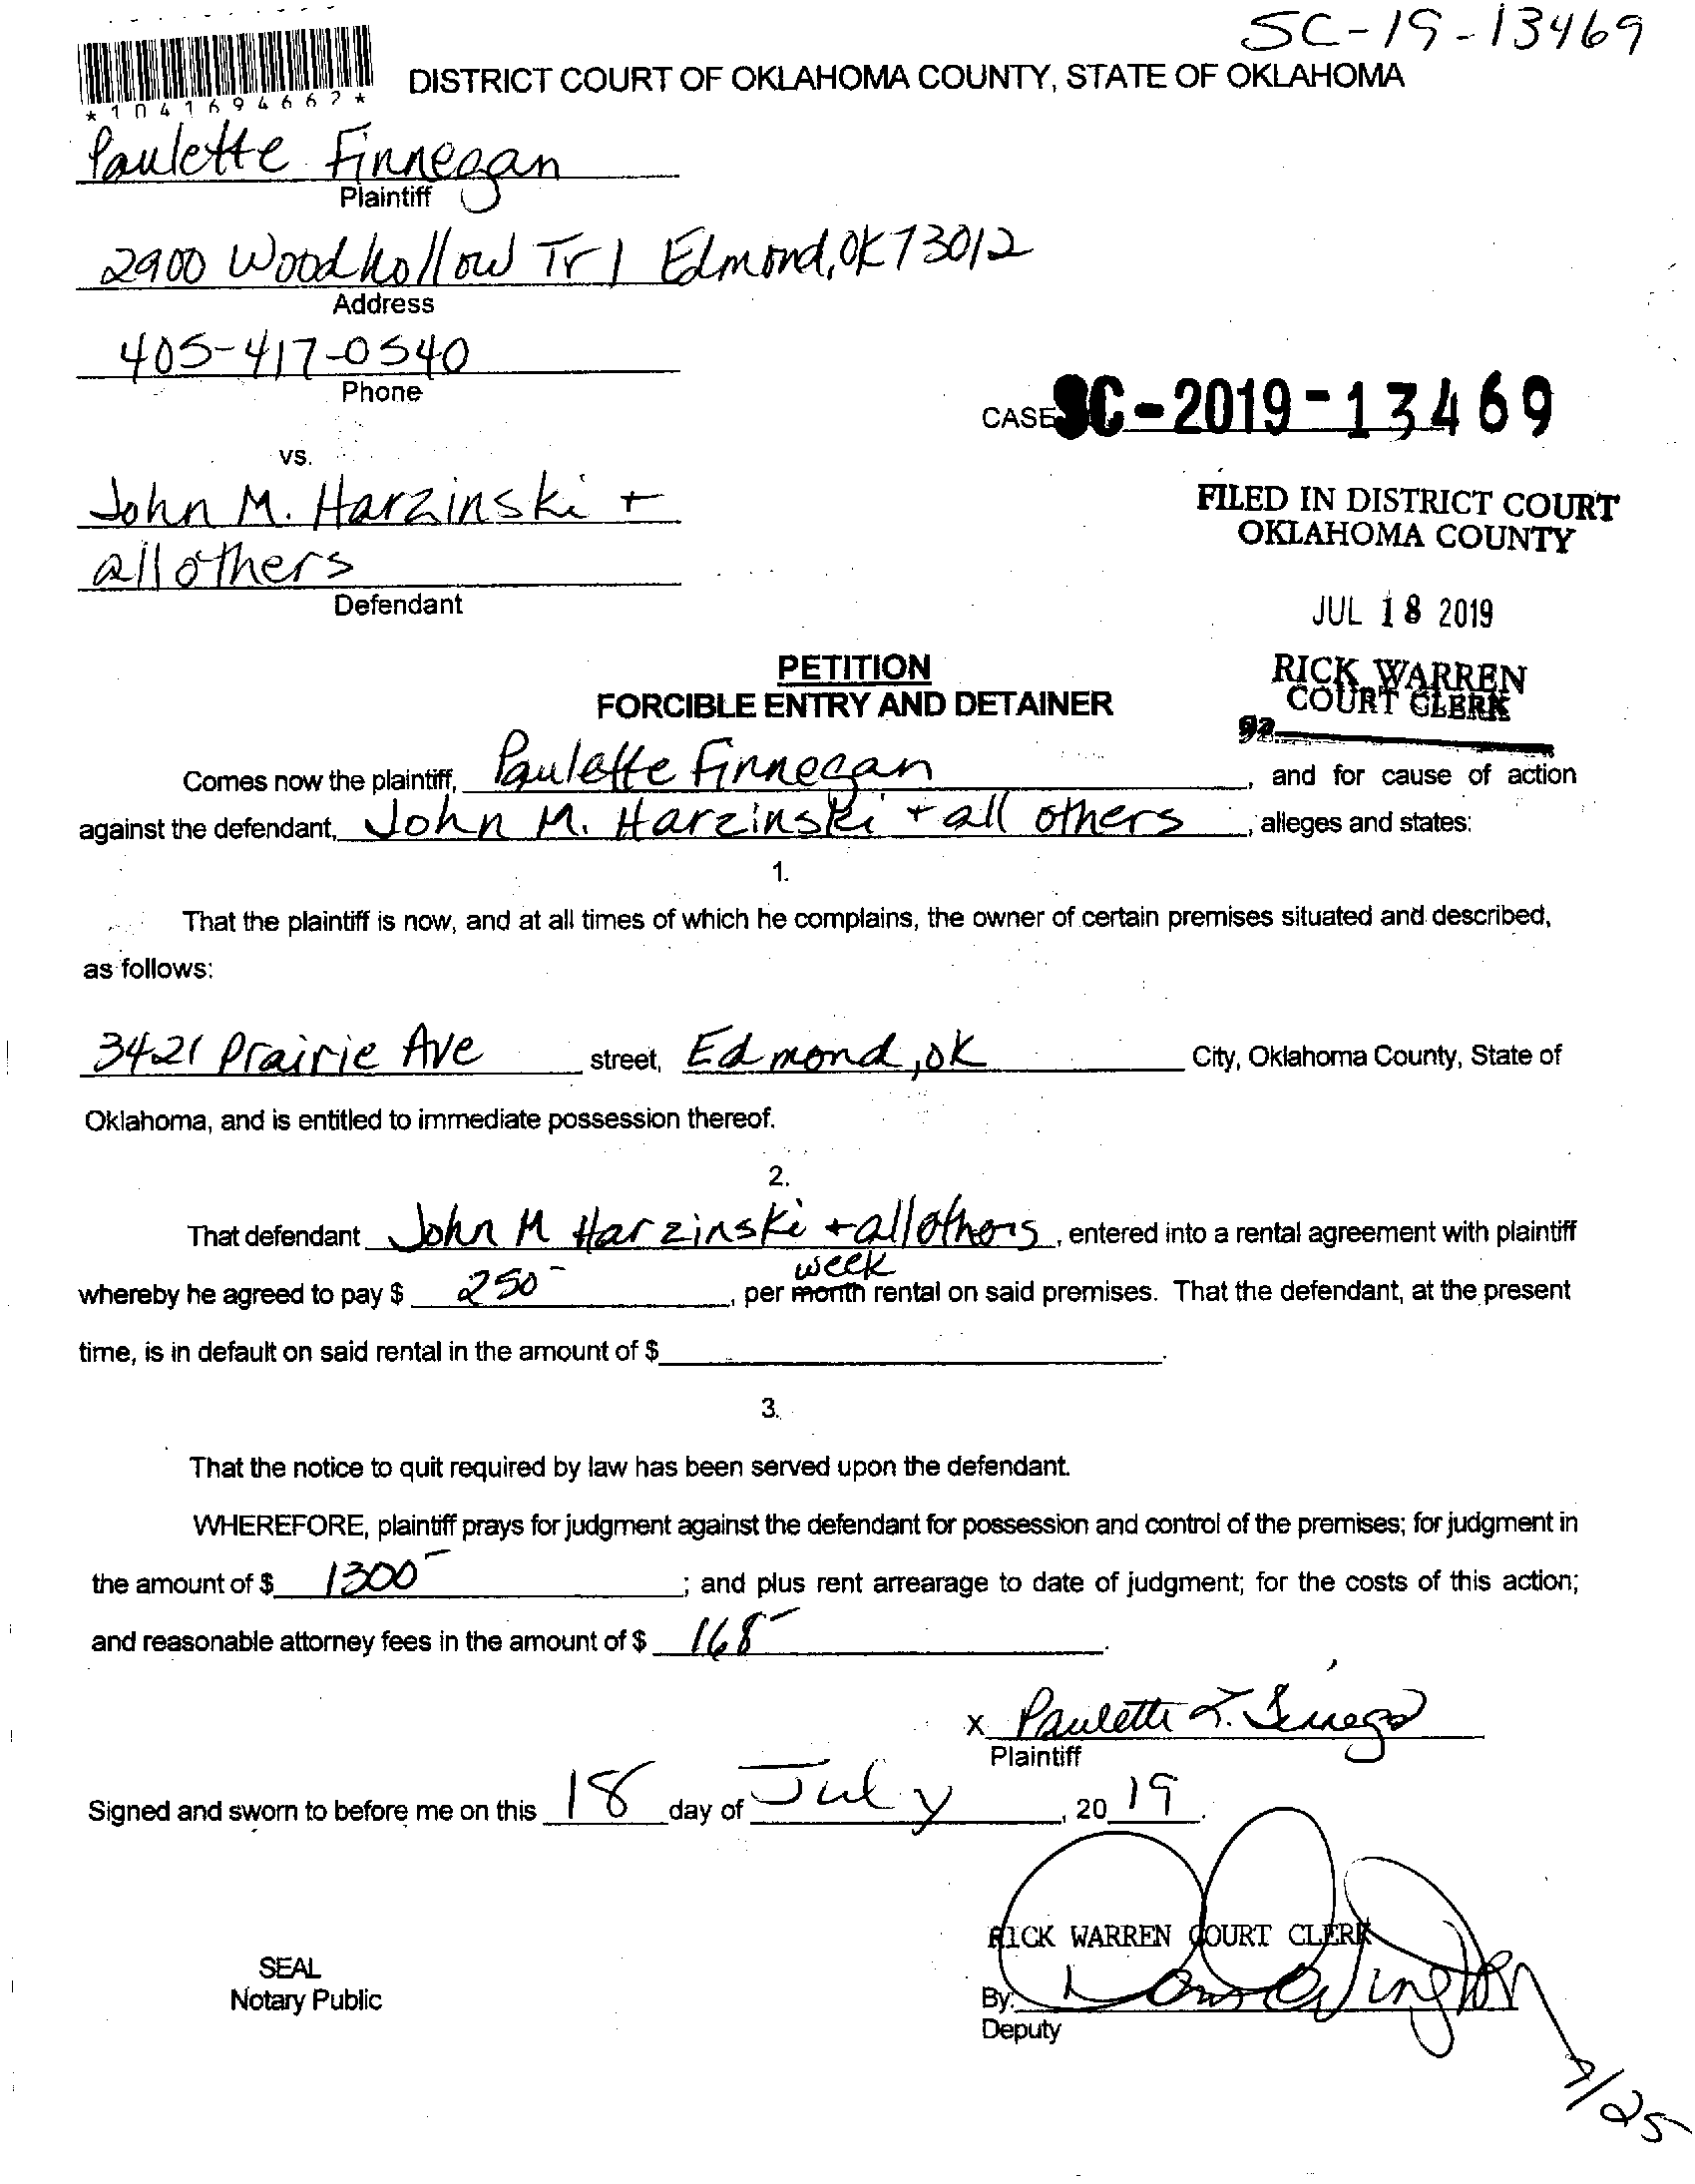 SC-19-13469
*1041694667*
DISTRICT COURT OF OKLAHOMA COUNTY, STATE OF OKLAHOMA
Paulette Finnegan
Plaintiff
2900 Woodhollow Trl Edmond, OK 73012
Address
405-417-0540
Phone
CASE SC-2019-13469
vs.
John M. Harzinski +
all others
Defendant
FILED IN DISTRICT COURT
OKLAHOMA COUNTY
JUL 18 2019
RICK WARREN
COURT CLERK
PETITION
FORCIBLE ENTRY AND DETAINER
Comes now the plaintiff, Paulette Finnegan, and for cause of action
against the defendant, John M. Harzinski + all others, alleges and states:
1.
That the plaintiff is now, and at all times of which he complains, the owner of certain premises situated and described,
as follows:
3421 Prairie Ave street, Edmond, OK City, Oklahoma County, State of
Oklahoma, and is entitled to immediate possession thereof.
2.
That defendant John M Harzinski + all others, entered into a rental agreement with plaintiff
week
whereby he agreed to pay $ 250-, per month rental on said premises. That the defendant, at the present
time, is in default on said rental in the amount of $ .
3.
That the notice to quit required by law has been served upon the defendant.
WHEREFORE, plaintiff prays for judgment against the defendant for possession and control of the premises; for judgment in
the amount of $ 1300-; and plus rent arrearage to date of judgment; for the costs of this action;
and reasonable attorney fees in the amount of $ 168-.
x Paulette
Plaintiff
Signed and sworn to before me on this 18 day of July, 2019.
RICK WARREN COURT CLERK
SEAL
Notary Public
By:
Deputy
7/25